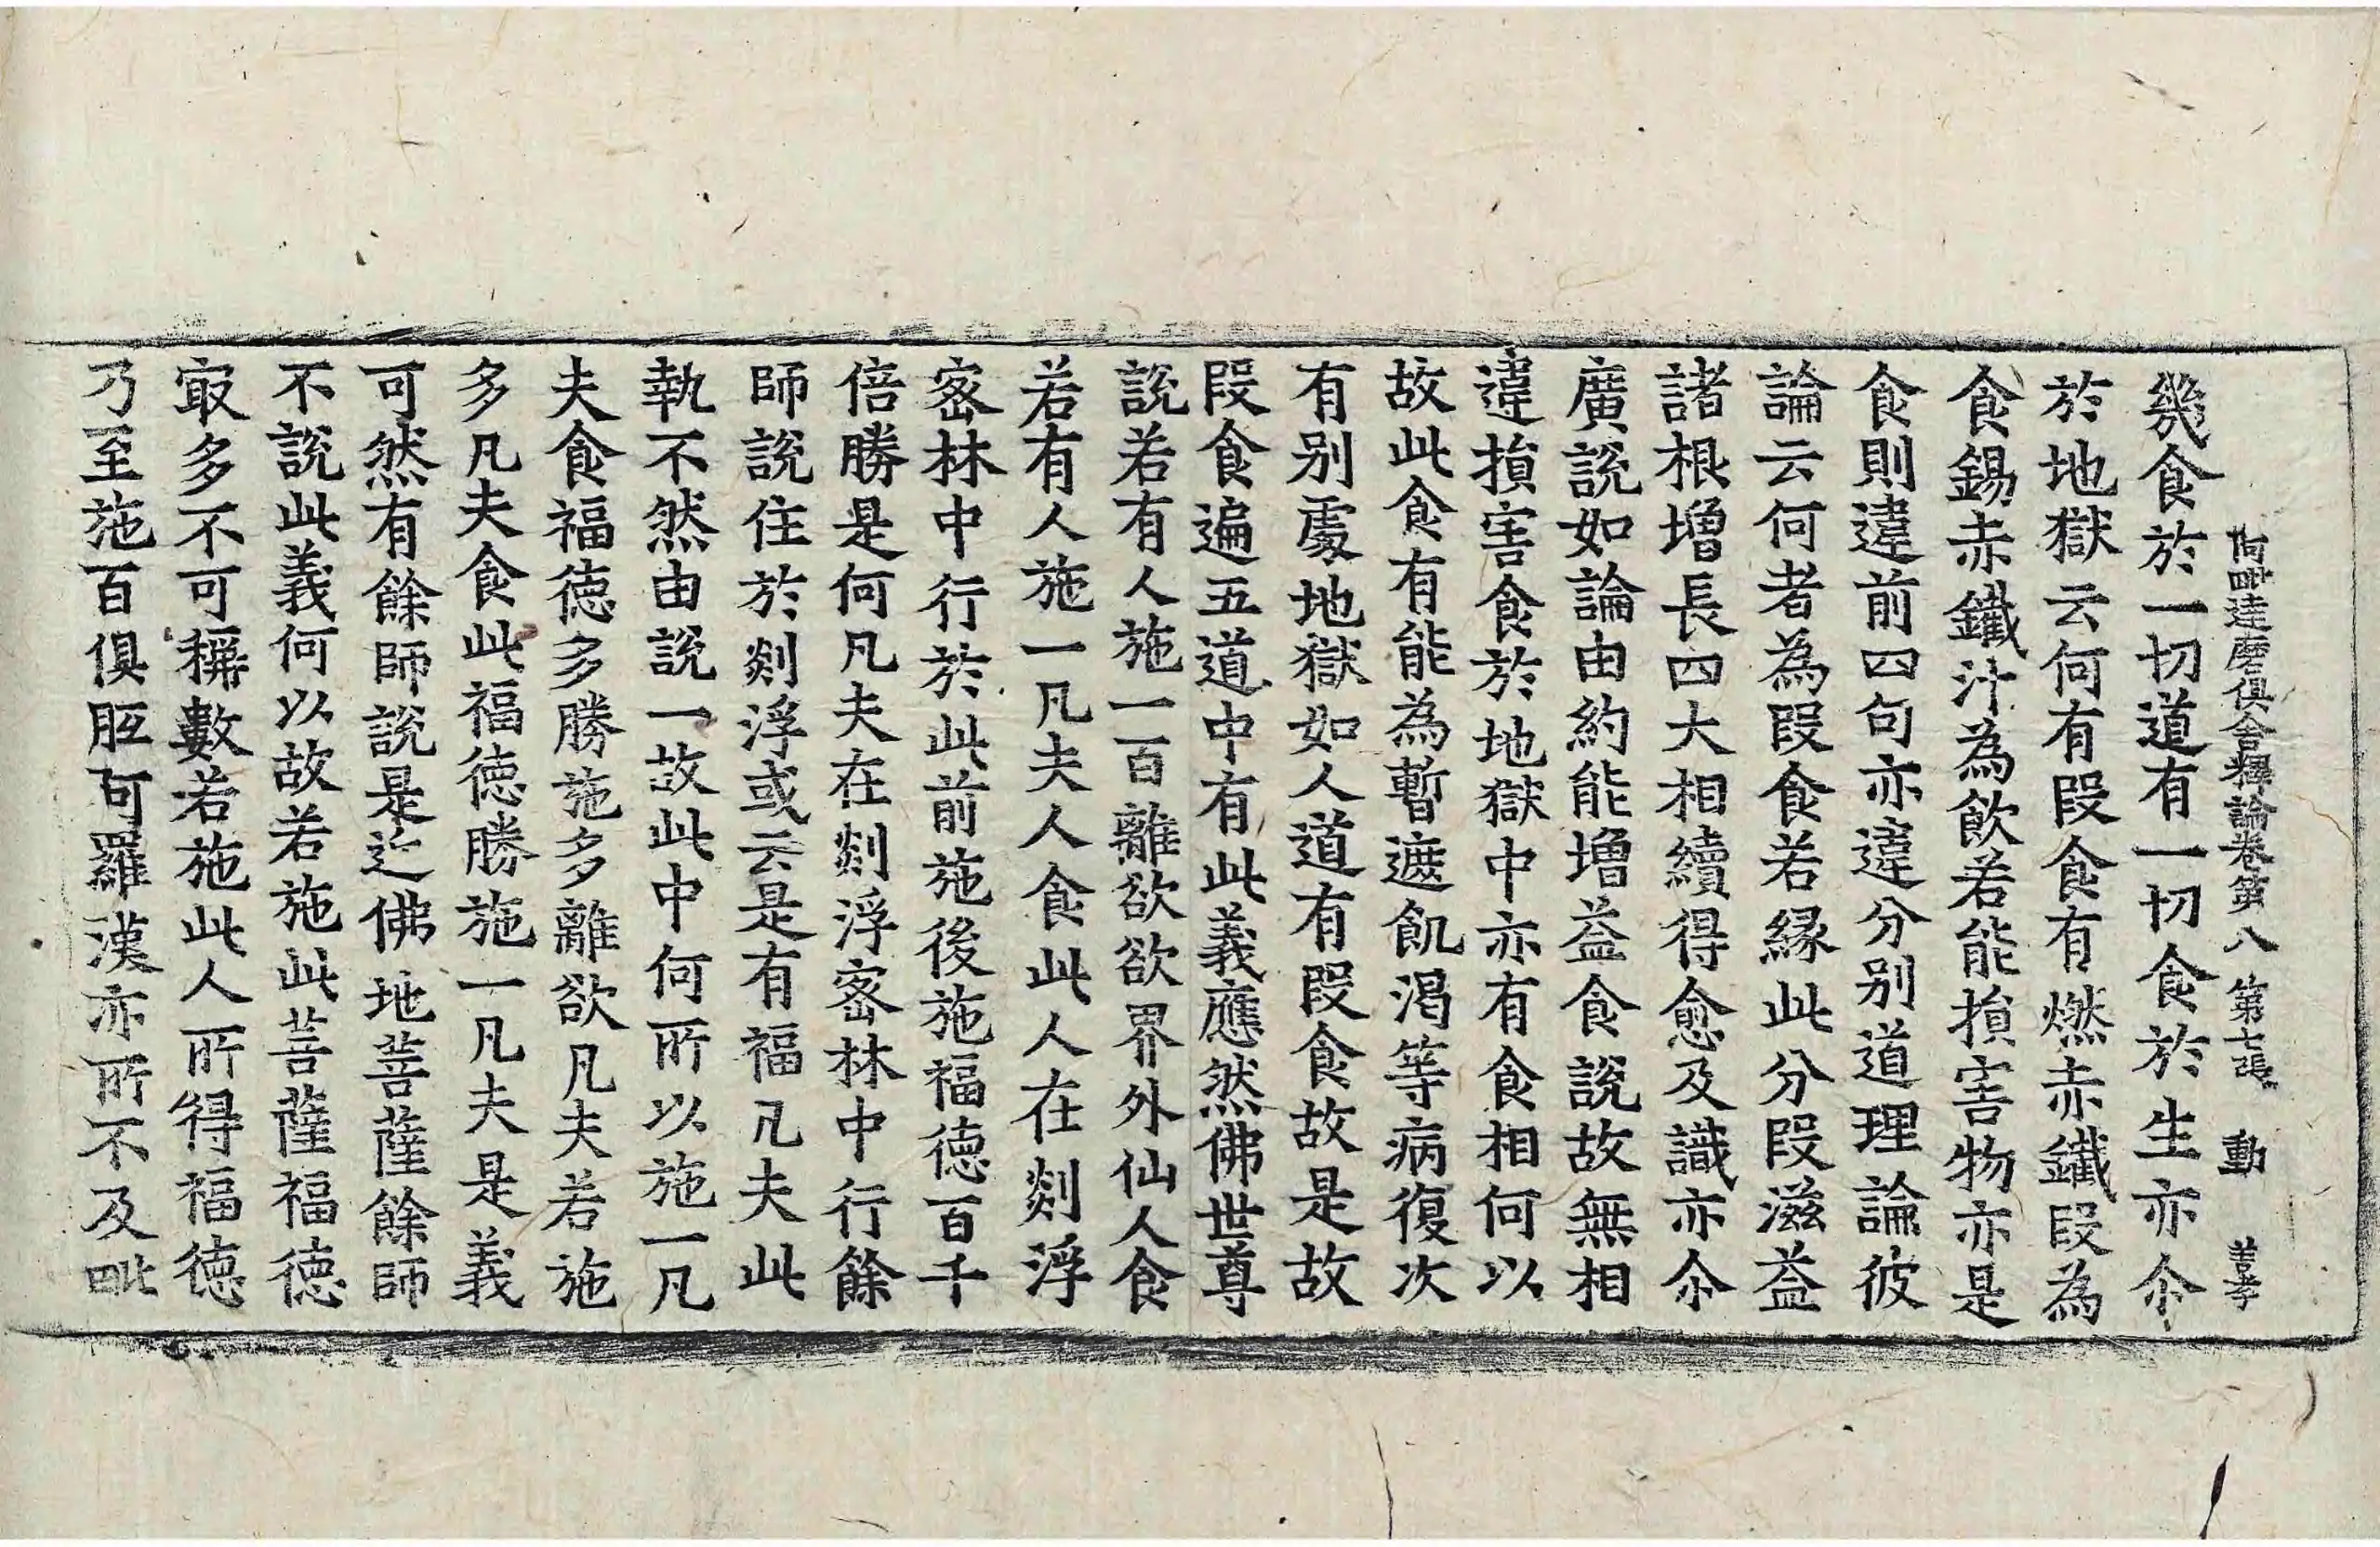 阿毗達磨俱舍釋論卷第八 第七張 動 善孝
幾食於一切道有一切食於生亦尒
於地獄云何有段食有燃赤鐵段為
食鍚赤鐵汁為飲若能損害物亦是
食則違前四句亦違分別道理論彼
論云何者為段食若縁此分段滋益
諸根增長四大相續得愈及識亦尒
廣說如論由約能增益食說故無相
違損害食於地獄中亦有食相何以
故此食有能為暫遮飢渴等病復次
有別處地獄如人道有段食故是故
段食遍五道中有此義應然佛世尊
說若有人施一百離欲欲界外仙人食
若有人施一凡夫人食此人在剡浮
宻林中行於此前施後施福德百千
倍勝是何凡夫在剡浮宻林中行餘
師說住於剡浮或云是有福凡夫此
執不然由說一故此中何所以施一凡
夫食福德多勝施多離欲凡夫若施
多凡夫食此福德勝施一凡夫是義
可然有餘師說是近佛地菩薩餘師
不說此義何以故若施此菩薩福德
㝡多不可稱數若施此人所得福德
乃至施百俱胝阿羅漢亦所不及毗